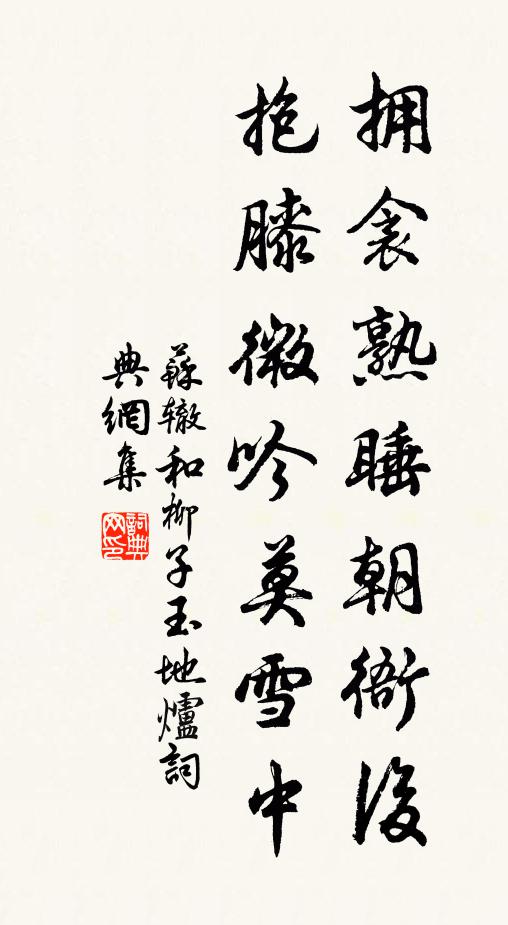 拥衾熟睡朝衙後
抱膝微吟莫雪中
蘇辙和柳子玉地爐詞
典網集
詞典网印